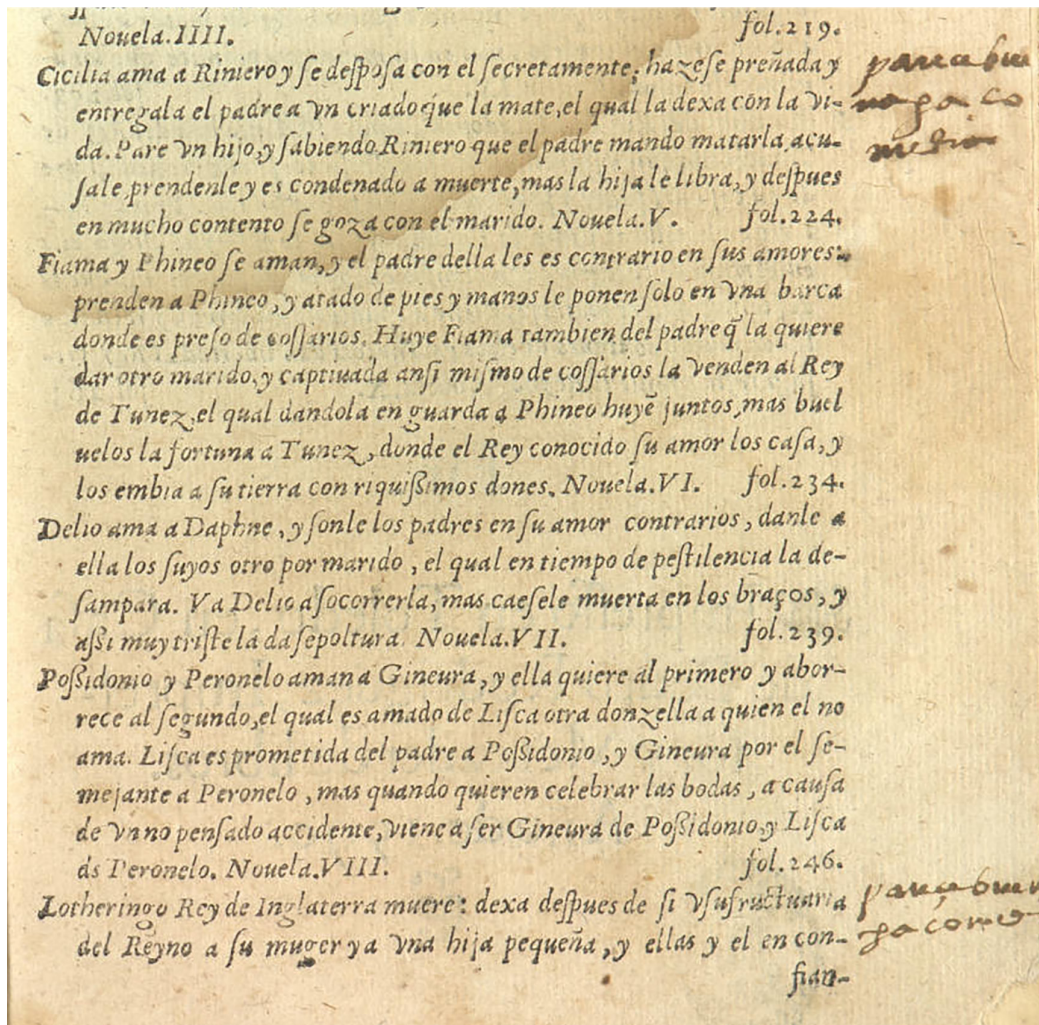 Nouela.IIII. fol.219.
Cicilia ama a Riniero y se desposa con el secretamente, hazese preñada y
entregala el padre a vn criado que la mate, el qual la dexa con la vi-
da. Pare vn hijo, y sabiendo Riniero que el padre mando matarla, acu-
sale, prendenle y es condenado a muerte, mas la hija le libra, y despues
en mucho contento se goza con el marido. Nouela.V. fol.224.
Fiama y Phineo se aman, y el padre della les es contrario en sus amores:
prenden a Phineo, y atado de pies y manos le ponen solo en vna barca
donde es preso de cossarios. Huye Fiama tambien del padre q̃ la quiere
dar otro marido, y captiuada ansi mismo de cossarios la venden al Rey
de Tunez, el qual dandola en guarda a Phineo huyẽ juntos, mas buel
uelos la fortuna a Tunez, donde el Rey conocido su amor los casa, y
los embia a su tierra con riquißimos dones. Nouela.VI. fol.234.
Delio ama a Daphne, y sonle los padres en su amor contrarios, danle a
ella los suyos otro por marido, el qual en tiempo de pestilencia la de-
sampara. Va Delio a socorrerla, mas caesele muerta en los braços, y
aßi muy triste la da sepoltura. Nouela.VII. fol.239.
Poßidonio y Peronelo aman a Gineura, y ella quiere al primero y abor-
rece al segundo, el qual es amado de Lisca otra donzella a quien el no
ama. Lisca es prometida del padre a Poßidonio, y Gineura por el se-
mejante a Peronelo, mas quando quieren celebrar las bodas, a causa
de vn no pensado accidente, viene a ser Gineura de Poßidonio, y Lisca
de Peronelo. Nouela.VIII. fol.246.
Lotheringo Rey de Inglaterra muere: dexa despues de si vsufructuaria
del Reyno a su muger y a vna hija pequeña, y ellas y el en con-
fian-